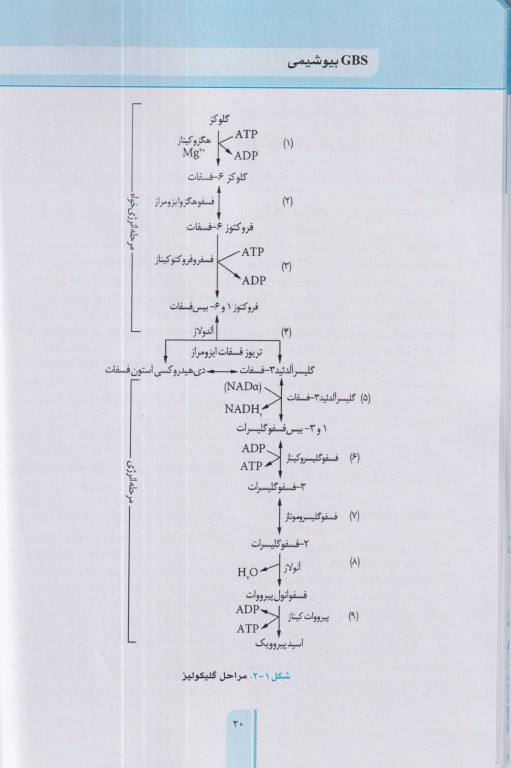 GBS بیوشیمی
گلوکز
(۱) هگزوکیناز ATP
Mg²⁺ ADP
گلوکز ۶-فسفات
(۲) فسفوهگزوایزومراز
فروکتوز ۶-فسفات
ATP
(۳) فسفروفروکتوکیناز
ADP
فروکتوز ۱ و ۶- بیس‌فسفات
(۴) آلدولاز
تریوز فسفات ایزومراز
گلیسرآلدئید۳-فسفات دی‌هیدروکسی استون فسفات
(NADα)
(۵) گلیسرآلدئید۳-فسفات
NADH₂
۱ و ۳- بیس فسفوگلیسرات
ADP
(۶) فسفوگلیسروکیناز
ATP
۳-فسفوگلیسرات
(۷) فسفوگلیسروموتاز
۲-فسفوگلیسرات
(۸) آنولاز
H₂O
فسفوانول پیرووات
ADP
(۹) پیرووات کیناز
ATP
اسید پیروویک
مرحله انرژی‌خواه
مرحله انرژی
شکل ۱-۲. مراحل گلیکولیز
۲۰